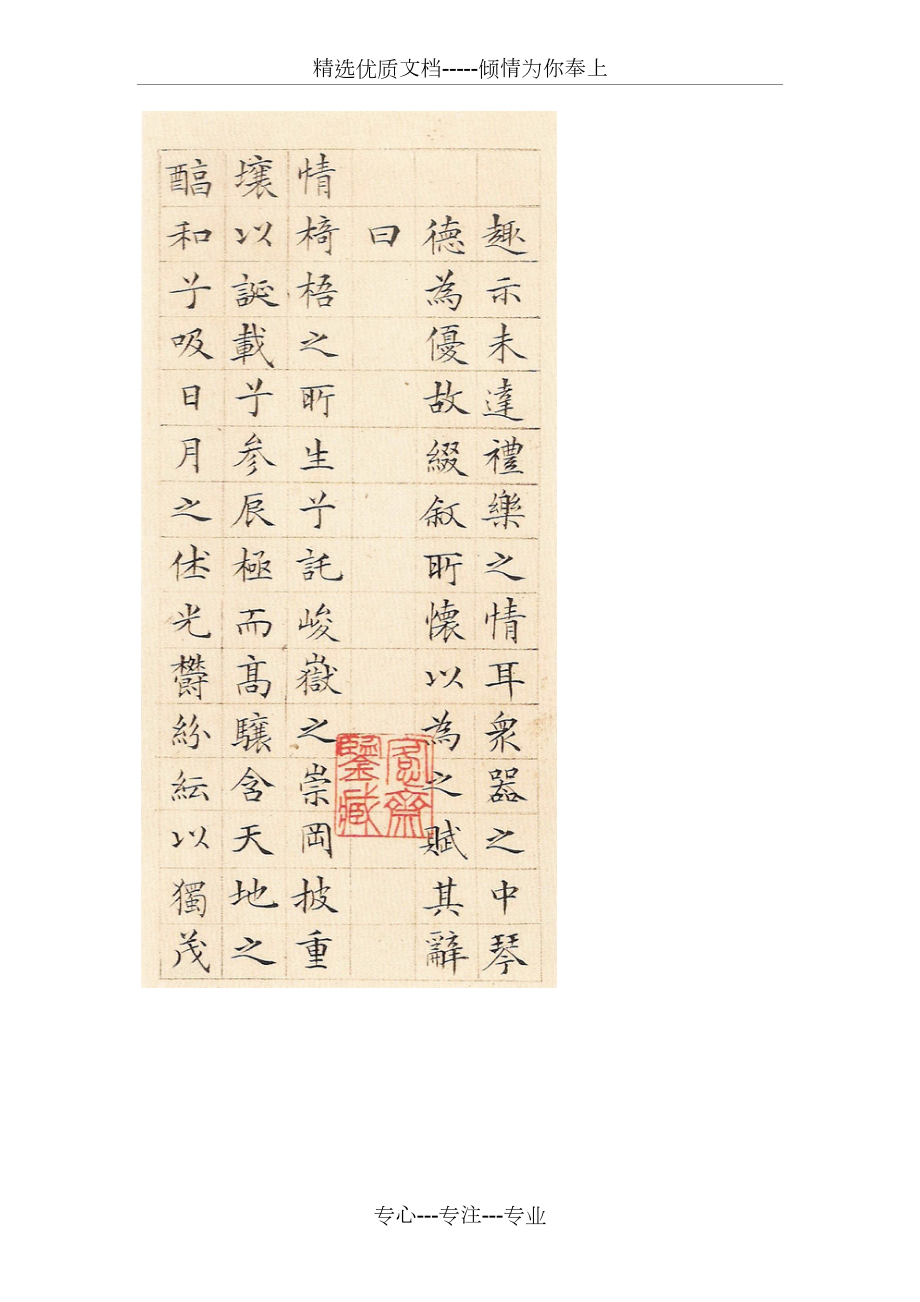 精选优质文档-----倾情为你奉上
趣示未達禮樂之情耳衆器之中琴
德為優故綴敘所懷以為之賦其辭
曰
情椅梧之所生兮託峻嶽之崇岡披重
壤以誕載兮参辰極而高驤含天地之
醕和兮吸日月之休光欝紛紜以獨茂
愙齋
鑒藏
专心---专注---专业